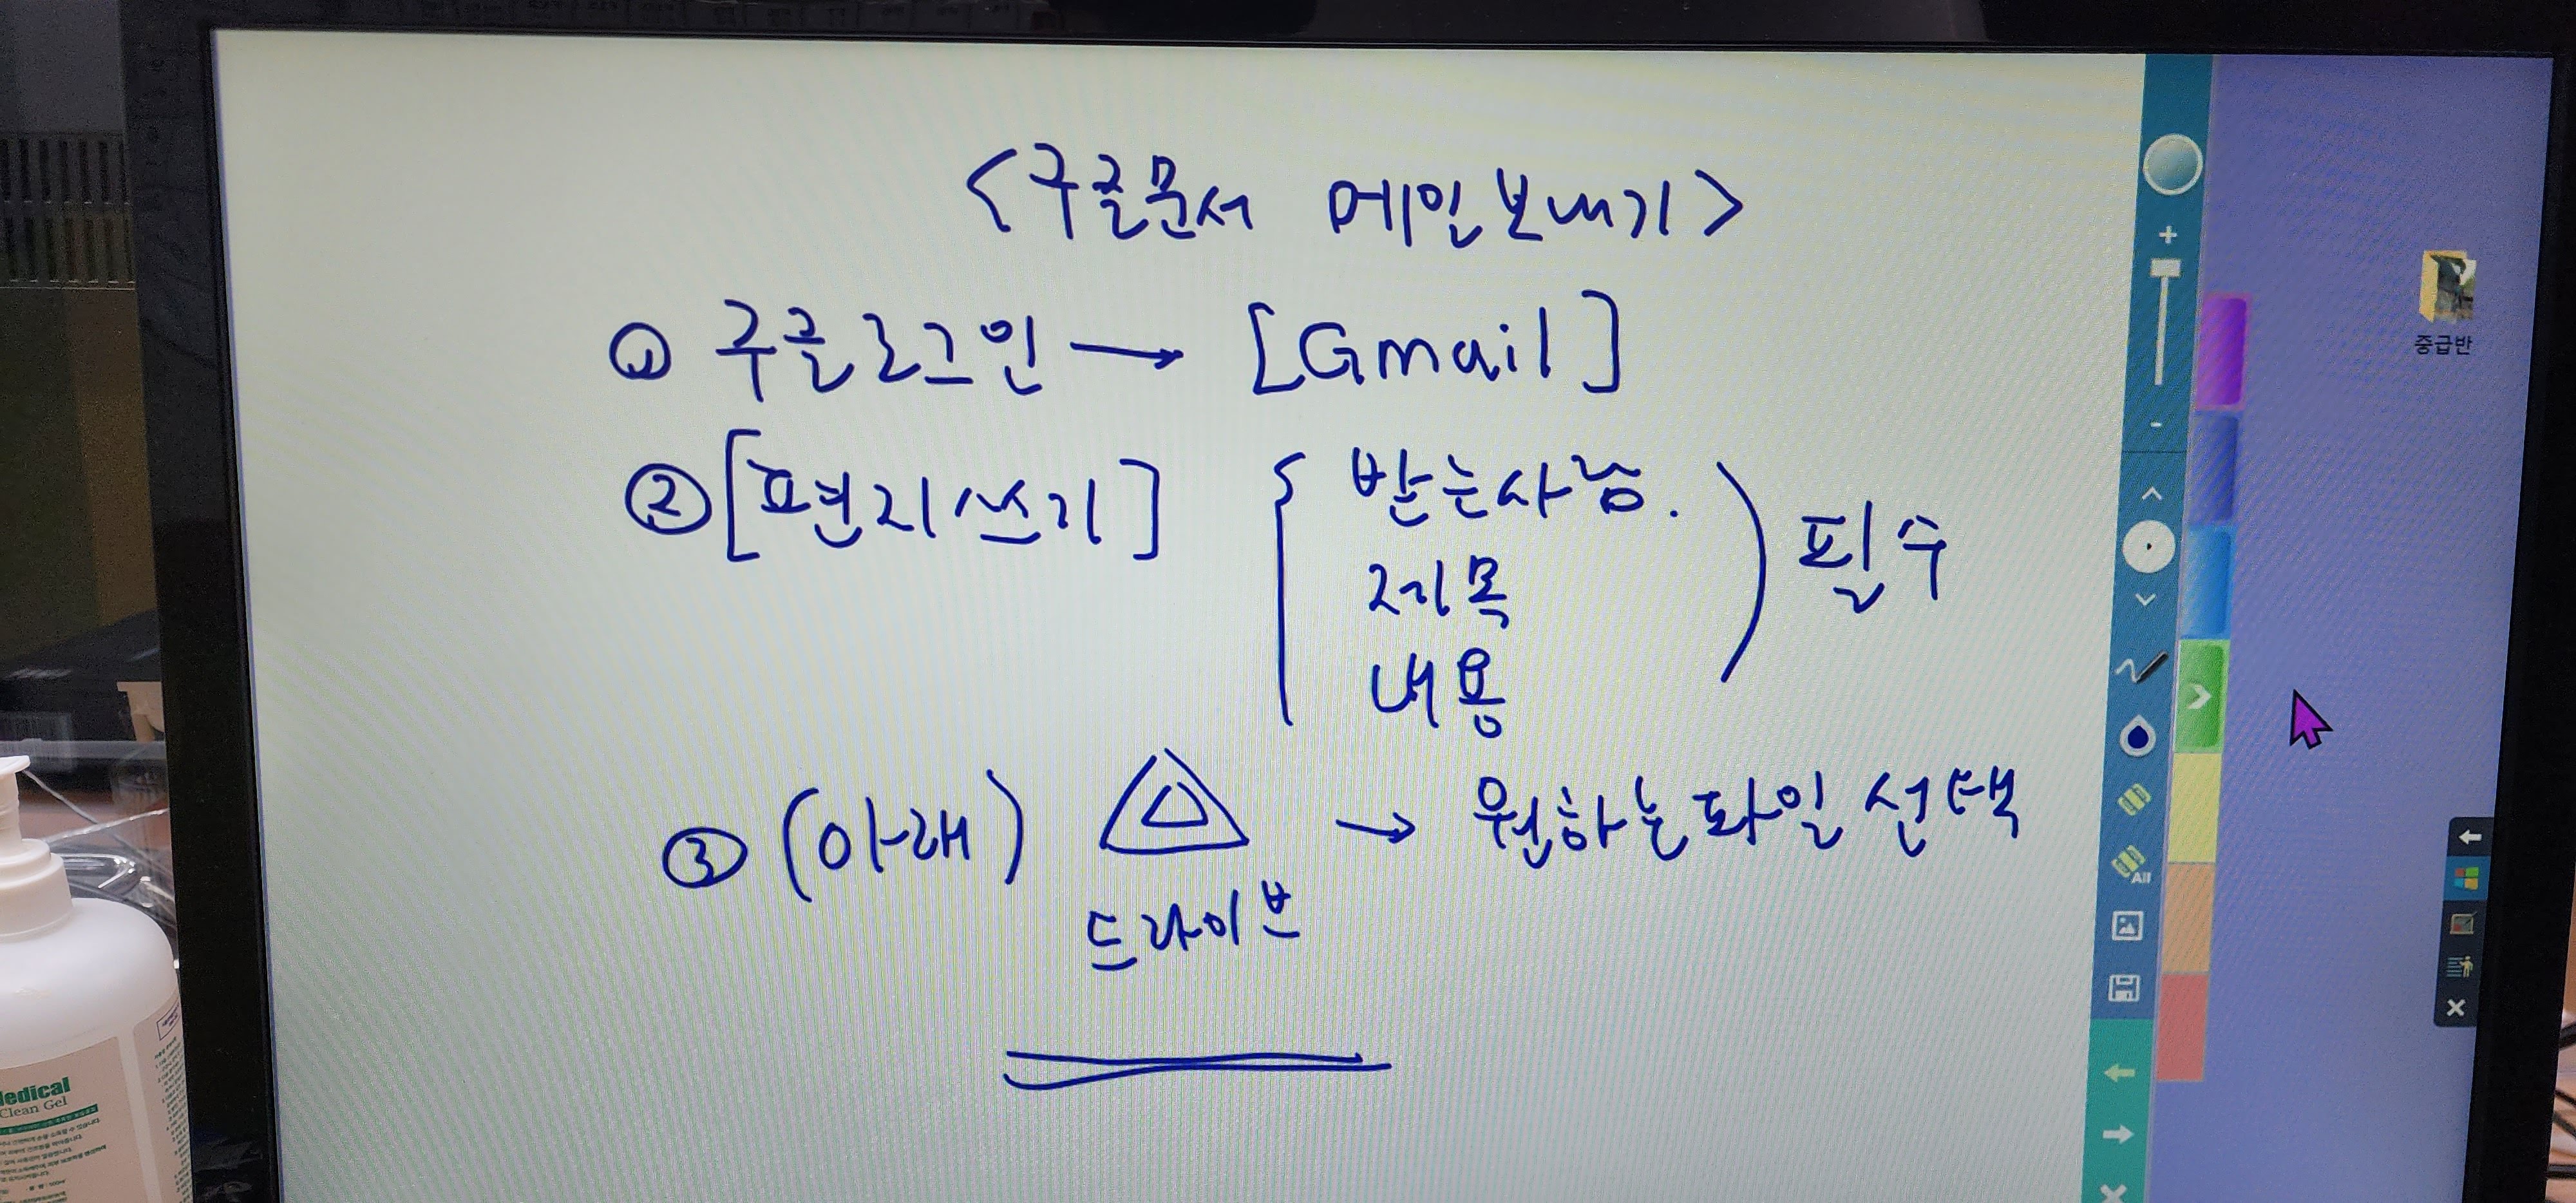 <구글문서 메일보내기>
① 구글로그인 → [Gmail]
② [편지쓰기] { 받는사람.
제목
내용
) 필수
③ (아래) → 원하는 파일 선택
드라이브
중급반
All
Medical
Clean Gel